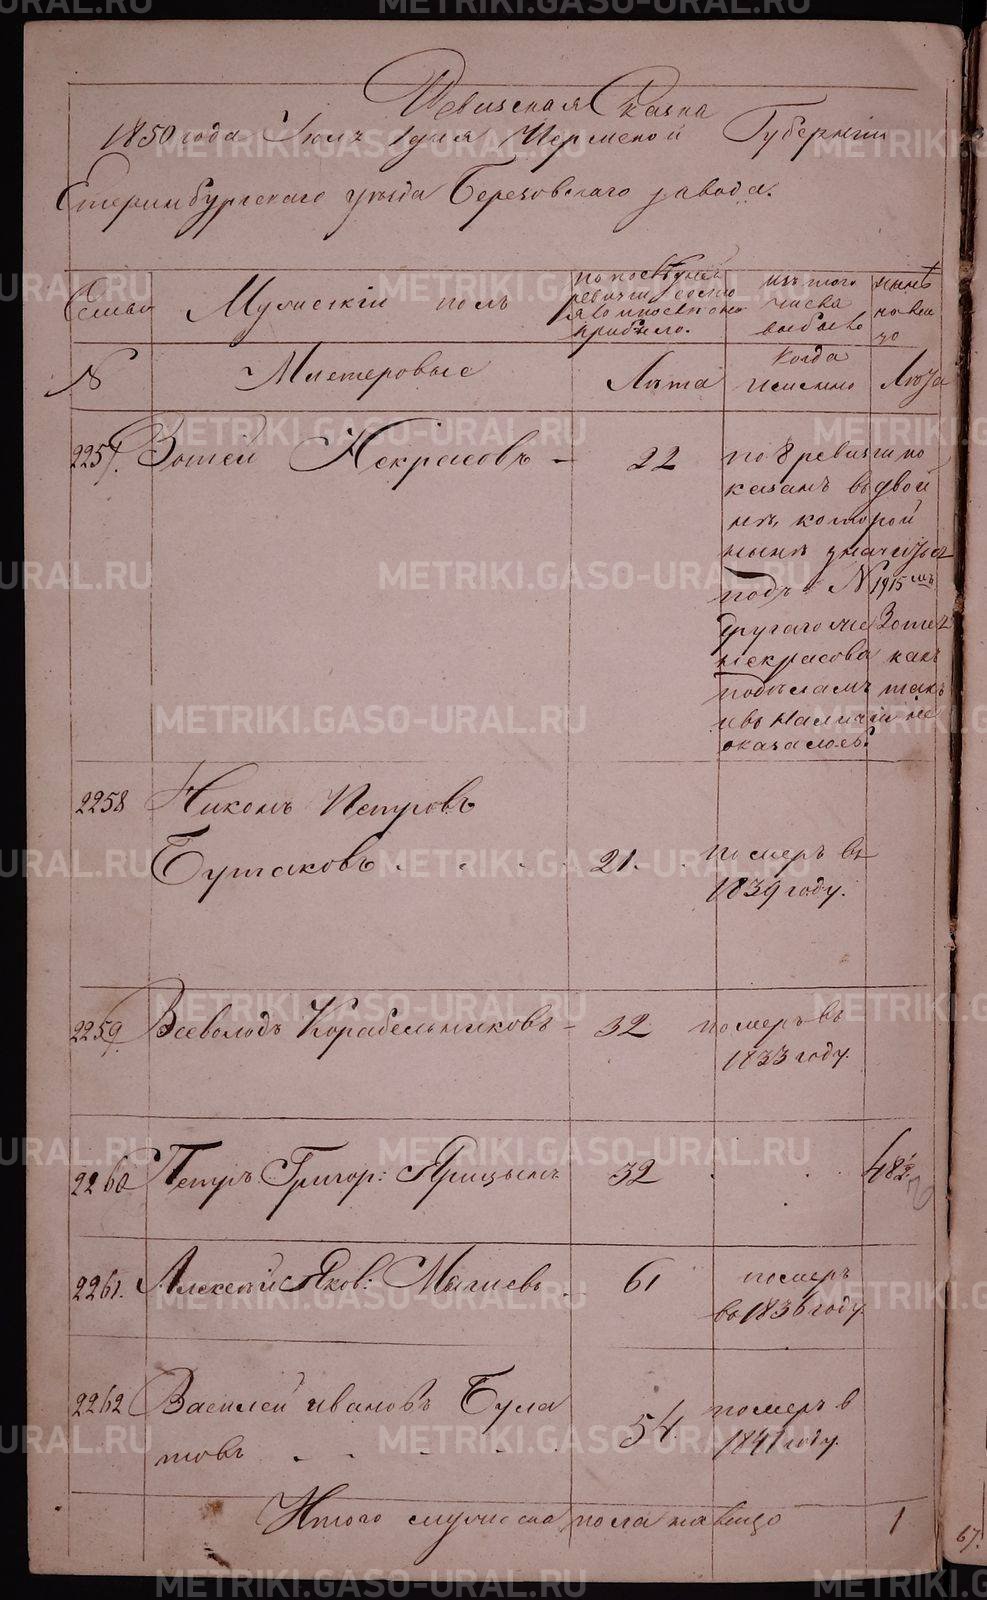 Ревизская Сказка
1850 года Июль дня Пермской Губернии
Екатеринбургского уезда Березовского завода.
Семьи
Мужский полъ
по последней
ревизии состоя
яло и после оно
прибыло.
изъ того
числа
выбыло
ныне
на лиц
цо
№
Мастеровые
Лета
когда
именно
Лета
2257. Зотей Некрасовъ — 22
по 8 ревизии по
казанъ въ двой
не, которой
ныне значится
подъ № 1915 мъ
другаго же Зотея
Некрасова какъ
по деламъ такъ
и въ наличии не
оказалось.
2258 Никонъ Петровъ
Бутаковъ . . . . 21. . померъ въ
1839 году.
2259. Всеволодъ Корабельниковъ — 32 померъ въ
1833 году.
2260 Петръ Григор: Ярицынъ 32 . . 48 1/2
2261. Алексей Яков: Мячиевъ . 61 померъ
въ 1836 году.
2262 Василей Ивановъ Була
товъ . . . . 54. померъ в
1841 году.
Итого мужеска пола на лицо 1
67.
METRIKI.GASO-URAL.RU